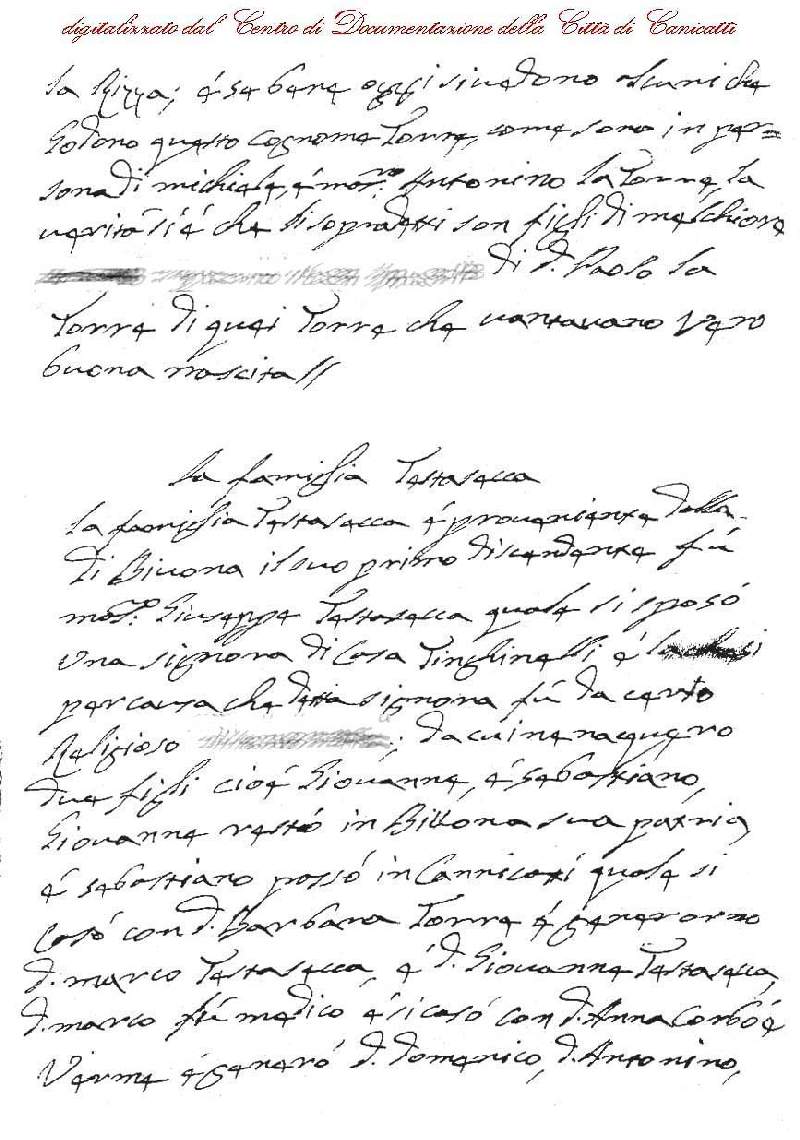 digitalizzato dal Centro di Documentazione della Città di Canicattì
la Rizza; é se bene oggi si vedono alcuni che
Godono questo Cognome Torre, come sono in per=
sona di michiele, é mo.ro Antonino la Torre, la
verità si é che li sopradetti son figli di melchiore
di d. Paolo la
Torre di quei Torre che vantavano vero
buona nascita//
la famiglia Testasecca
la famiglia Testasecca é proveniente dalla
di Bivona il suo primo discendente fù
Giuseppe Testasecca quale si sposó
una signora di Casa Tinghinelli é
per causa che detta signora fù da certo
Religioso ; da cui ne naquero
due figli cioé Giovanne, é sebastiano,
Giovanne restó in Bivona sua patria
é sebastiano passó in Cannicati quale si
Casó con d. Barbara Torre é generorno
d. marco Testasecca, é d. Giovanne Testasecca,
d. marco fú medico é si casó con d. Anna Corbo é
Verme é generó d. Domenico, d. Antonino,